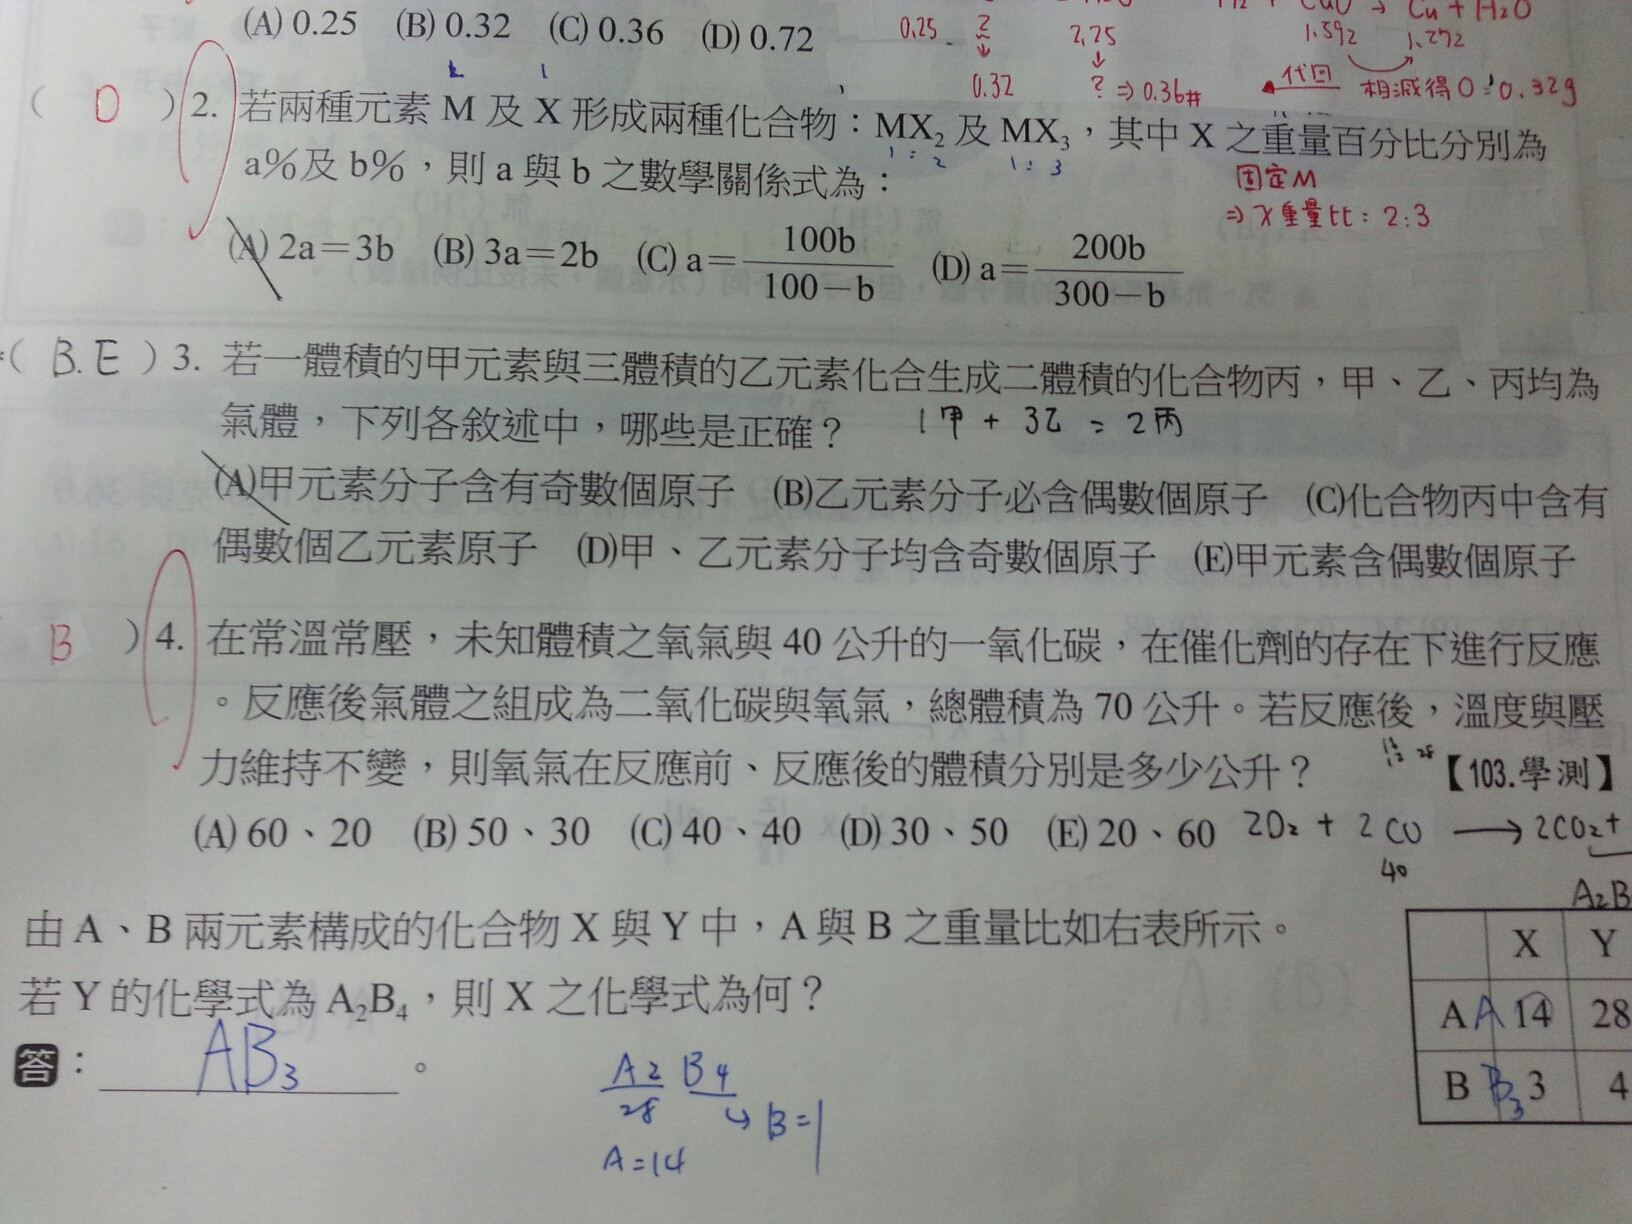 (A) 0.25 (B) 0.32 (C) 0.36 (D) 0.72
0.25 2 2.25 1.592 1.272
0.32 ? ⇒ 0.36# 代回 相減得O=0.32g
Cu + H2O
( D ) 2. 若兩種元素 M 及 X 形成兩種化合物：MX₂ 及 MX₃，其中 X 之重量百分比分別為
1:2 1:3
a%及 b%，則 a 與 b 之數學關係式為：
固定M
⇒ X重量比：2:3
(A) 2a＝3b (B) 3a＝2b (C) a＝100b/(100－b) (D) a＝200b/(300－b)
( B.E ) 3. 若一體積的甲元素與三體積的乙元素化合生成二體積的化合物丙，甲、乙、丙均為
氣體，下列各敘述中，哪些是正確？ 1甲 + 3乙 = 2丙
(A)甲元素分子含有奇數個原子 (B)乙元素分子必含偶數個原子 (C)化合物丙中含有
偶數個乙元素原子 (D)甲、乙元素分子均含奇數個原子 (E)甲元素含偶數個原子
B ) 4. 在常溫常壓，未知體積之氧氣與 40 公升的一氧化碳，在催化劑的存在下進行反應
。反應後氣體之組成為二氧化碳與氧氣，總體積為 70 公升。若反應後，溫度與壓
力維持不變，則氧氣在反應前、反應後的體積分別是多少公升？ 【103.學測】
(A) 60、20 (B) 50、30 (C) 40、40 (D) 30、50 (E) 20、60 2O₂ + 2CO → 2CO₂+
40
A₂B
由 A、B 兩元素構成的化合物 X 與 Y 中，A 與 B 之重量比如右表所示。
X Y
若 Y 的化學式為 A₂B₄，則 X 之化學式為何？
A A 14 28
答： AB₃ 。
B B₃ 3 4
A2 B4
28 ↳ B=1
A=14